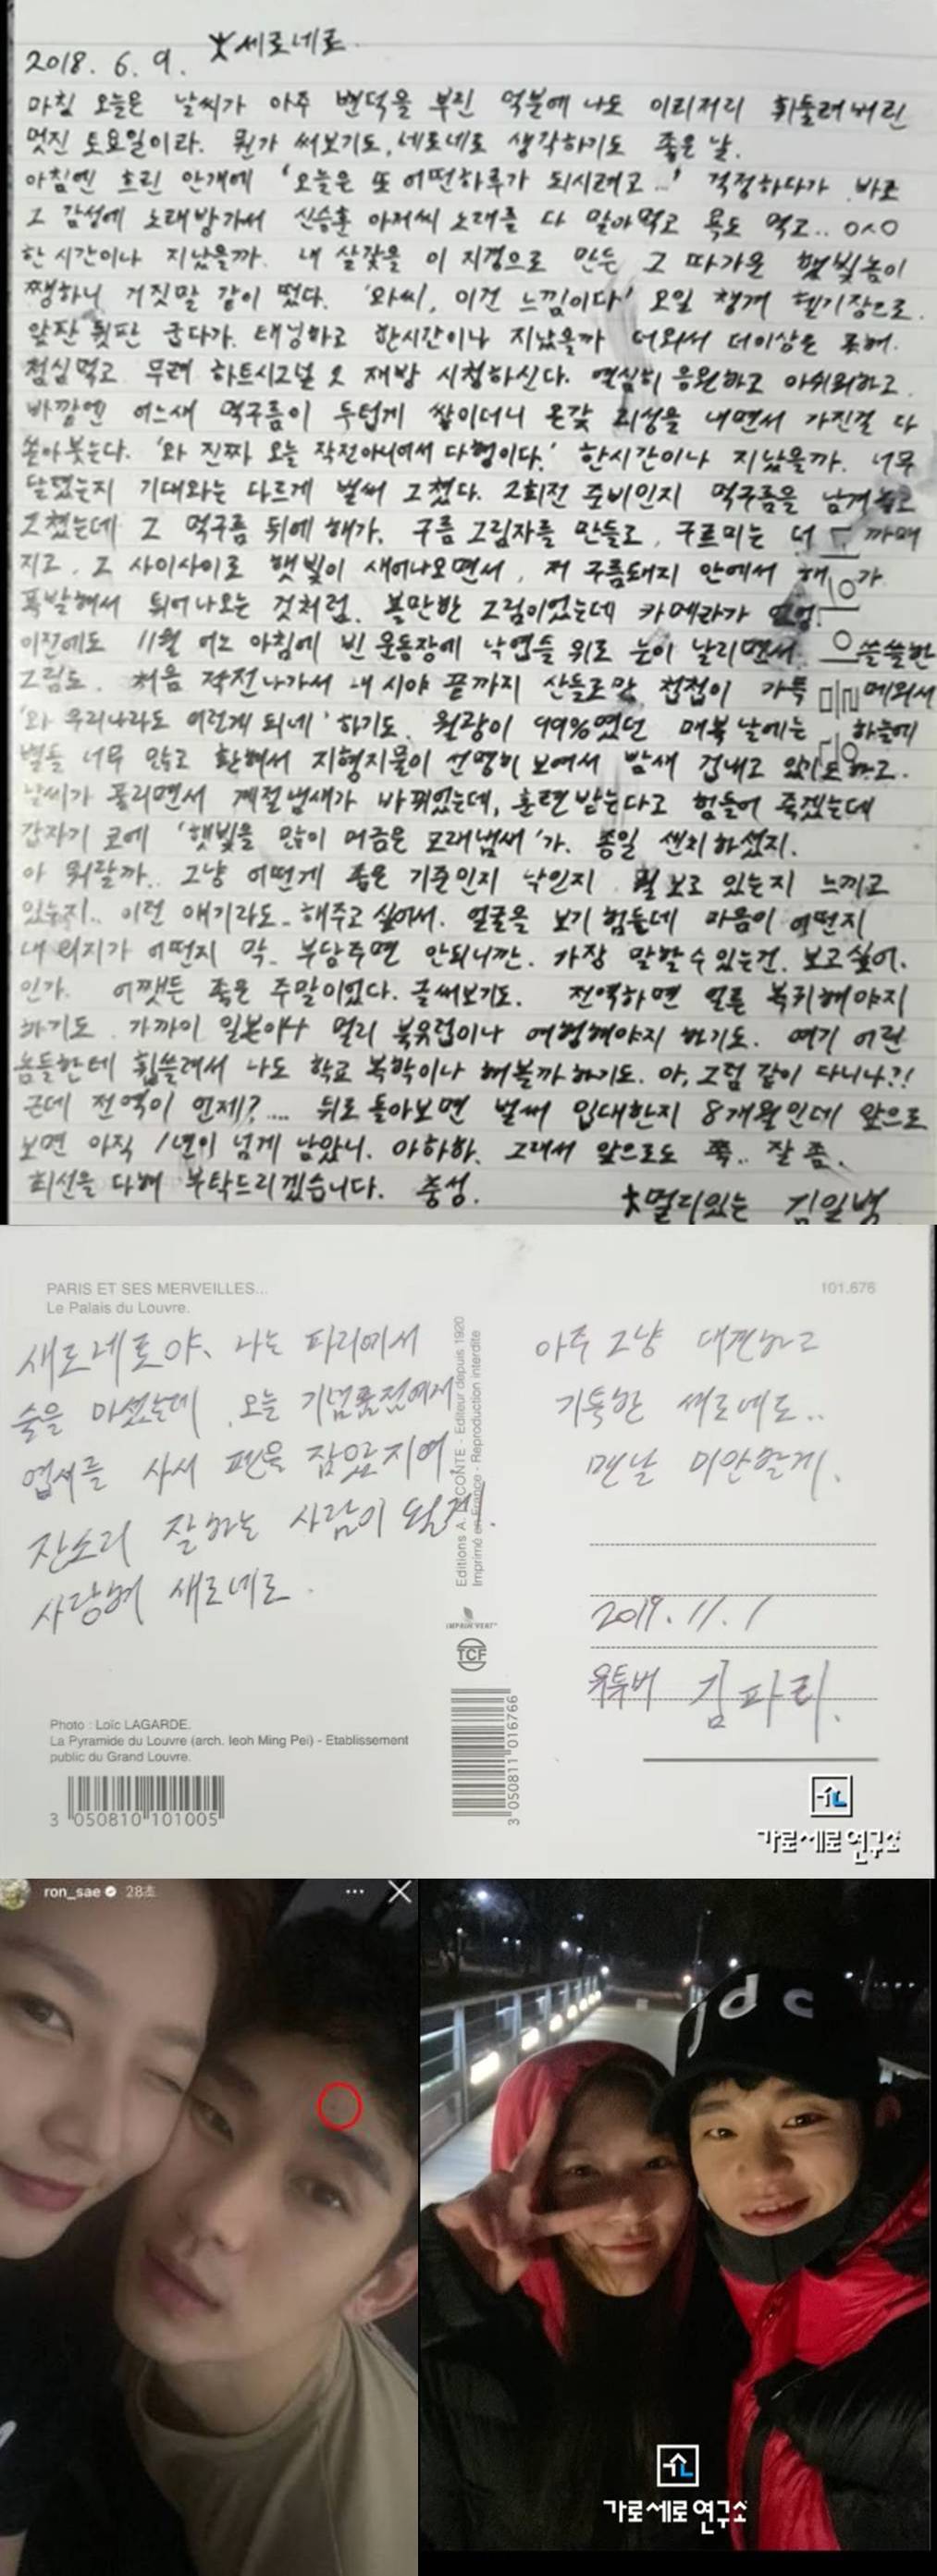 2018. 6. 9. 세로네로
마침 오늘은 날씨가 아주 변덕을 부린 덕분에 나도 이리저리 휘둘려버린
멋진 토요일이라. 뭔가 써보기도, 세로네로 생각하기도 좋은 날.
아침엔 흐린 안개에 '오늘은 또 어떤하루가 되시려고...' 걱정하다가 바로
그 감성에 노래방가서 신승훈 아저씨 노래를 다 말아먹고 욕도 먹고.. ㅇㅅㅇ
한 시간이나 지났을까. 내 살갗을 이 지경으로 만든 그 따가운 햇빛놈이
쨍하니 거짓말 같이 떴다. '와씨, 이건 느낌이다' 오일 챙겨 헬기장으로.
앞판 뒷판 굽다가. 태닝하고 한시간이나 지났을까 더워서 더이상은 못해.
점심먹고 무려 하트시그널 2 재방 시청하신다. 열심히 응원하고 아쉬워하고.
바깥엔 어느새 먹구름이 두텁게 쌓이더니 온갖 괴성을 내면서 가진걸 다
쏟아붓는다. '와 진짜 오늘 작전아니어서 다행이다.' 한시간이나 지났을까. 너무
달렸는지 기대와는 다르게 벌써 그쳤다. 2회전 준비인지 먹구름을 남겨
그쳤는데 그 먹구름 뒤에 해가. 구름 그림자를 만들고, 구르미는 더 까매
지고. 그 사이사이로 햇빛이 새어나오면서, 저 구름돼지 안에서 해가
폭발해서 튀어나오는 것처럼. 볼만한 그림이었는데 카메라가
이전에도 11월 어느 아침에 빈 운동장에 낙엽들 위로 눈이 날리면서 쓸쓸한
그림도. 처음 작전나가서 내 시야 끝까지 산들로만 첩첩이 가득 메워서
'와 우리나라도 이렇게 되네' 하기도. 월광이 99%였던 매복 날에는 하늘에
별들 너무 많고 환해서 지형지물이 선명히 보여서 밤새 겁내고 있기도하고.
날씨가 풀리면서 계절냄새가 바뀌었는데, 훈련받는다고 힘들어 죽겠는데
갑자기 코에 '햇빛을 많이 머금은 모래냄새'가. 종일 센치하셨지.
아 뭐랄까.. 그냥 어떤게 좋은 기준인지 낙인지 뭘 보고 있는지 느끼고
있는지.. 이런 얘기라도.. 해주고 싶어서. 얼굴을 보기 힘든데 마음이 어떤지
내 의지가 어떤지 막.. 부담주면 안되니깐. 가장 말할수있는건. 보고싶어.
인가. 어쨋든 좋은 주말이었다. 글써보기도. 전역하면 얼른 복귀해야지
하기도. 가까이 일본이나 멀리 북유럽이나 여행해야지 하기도. 여기 어린
놈들한테 휩쓸려서 나도 학교 복학이나 해볼까하기도. 아, 그럼 같이 다니나?!
근데 전역이 언제?.... 뒤로 돌아보면 벌써 입대한지 8개월인데 앞으로
보면 아직 1년이 넘게 남았니. 아하하. 그래서 앞으로도 쭉.. 잘 좀.
최선을 다해 부탁드리겠습니다. 충성.
멀디있는 김일병
PARIS ET SES MERVEILLES...
Le Palais du Louvre.
101.676
새로네로야. 나는 파리에서
술을 마셨는데, 오늘 기념품점에서
엽서를 사서 펜을
잔소리 잘하는 사람이 될게.
사랑해 새로네로.
Editions A. LECONTE - Editeur depuis 1920
Imprimé en France - Reproduction interdite
IMPRIM'VERT
TCF
3 050811 016766
아주 그냥 대견하고
기특한 새로네로..
맨날 미안할게.
2019. 11. 1
유튜버 김파리.
Photo : Loïc LAGARDE.
La Pyramide du Louvre (arch. Ieoh Ming Pei) - Etablissement
public du Grand Louvre.
3 050810 101005
가로세로연구소
ron_sae 28초
jdc
가로세로연구소